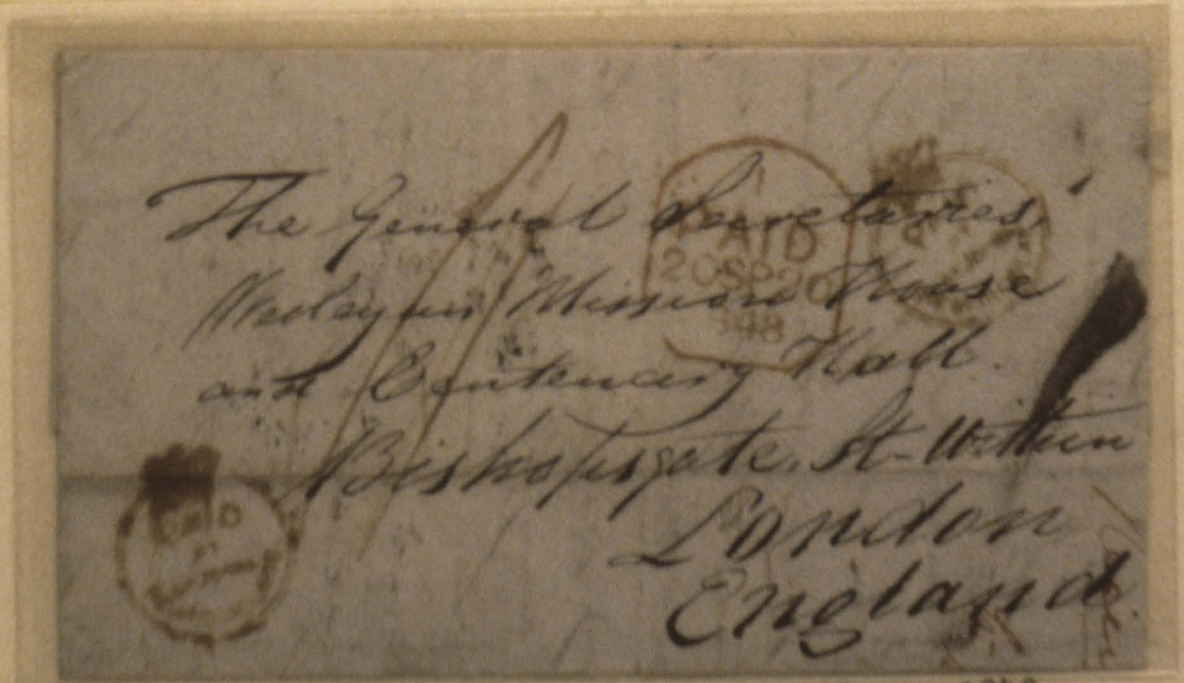 The General Secretaries,
Wesleyan Mission House
and Centenary Hall.
Bishopsgate, St. Within
London
England.
PAID
20SP20
1848
PAID